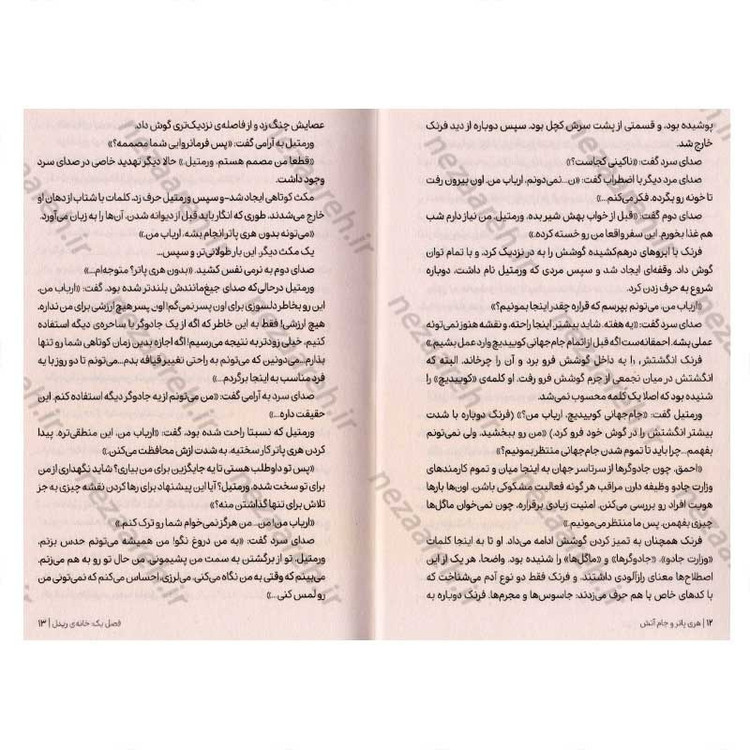 پوشیده بود، و قسمتی از پشت سرش کچل بود. سپس دوباره از دید فرنک
خارج شد.
صدای سرد گفت: «ناگینی کجاست؟»
صدای مرد دیگر با اضطراب گفت: «ن...نمی‌دونم، ارباب من. اون بیرون رفت
تا خونه رو بگرده، فکر می‌کنم...»
صدای دوم گفت: «قبل از خواب بهش شیر بده، ورمتیل. من نیاز دارم شب
هم غذا بخورم. این سفر واقعا من رو خسته کرده.»
فرنک با ابروهای درهم‌کشیده گوشش را به در نزدیک کرد، و با تمام توان
گوش داد. وقفه‌ای ایجاد شد و سپس مردی که ورمتیل نام داشت، دوباره
شروع به حرف زدن کرد.
«ارباب من، می‌تونم بپرسم که قراره چقدر اینجا بمونیم؟»
صدای سرد گفت: «یه هفته. شاید بیشتر. اینجا راحته، و نقشه هنوز نمی‌تونه
عملی بشه. احمقانه‌ست اگه قبل از اتمام جام‌جهانی کوییدیچ وارد عمل بشیم.»
فرنک انگشتش را به داخل گوشش فرو برد و آن را چرخاند. البته که
انگشتش در میان تجمعی از جرم گوشش فرو رفت. او کلمه‌ی «کوییدیچ» را
شنیده بود که اصلا یک کلمه محسوب نمی‌شد.
ورمتیل گفت: «جام‌جهانی کوییدیچ، ارباب من؟» (فرنک دوباره با شدت
بیشتر انگشتش را در گوش خود فرو کرد.) «من رو ببخشید، ولی نمی‌تونم
بفهمم...چرا باید تا تموم شدن جام‌جهانی منتظر بمونیم؟»
«احمق، چون جادوگرها از سرتاسر جهان به اینجا میان و تموم کارمندهای
وزارت جادو وظیفه دارن مراقب هر گونه فعالیت مشکوکی باشن. اون‌ها بارها
هویت افراد رو بررسی می‌کنن. امنیت زیادی برقراره، چون نمی‌خوان ماگل‌ها
چیزی بفهمن. پس ما منتظر می‌مونیم.»
فرنک همچنان به تمیز کردن گوشش ادامه می‌داد. او تا به اینجا کلمات
«وزارت جادو»، «جادوگرها» و «ماگل‌ها» را شنیده بود. واضحا، هر یک از این
اصطلاح‌ها معنای رازآلودی داشتند، و فرنک فقط دو نوع آدم می‌شناخت که
با کدهای خاص با هم حرف می‌زدند: جاسوس‌ها و مجرم‌ها. فرنک دوباره به
۱۲ | هری پاتر و جام آتش
عصایش چنگ زد و از فاصله‌ی نزدیک‌تری گوش داد.
ورمتیل به آرامی گفت: «پس فرمانروایی شما مصممه؟»
«قطعا من مصمم هستم، ورمتیل.» حالا دیگر تهدید خاصی در صدای سرد
وجود داشت.
مکث کوتاهی ایجاد شد–و سپس ورمتیل حرف زد، کلمات با شتاب از دهان او
خارج می‌شدند، طوری که انگار باید قبل از دیوانه شدن، آن‌ها را به زبان می‌آورد.
«می‌تونه بدون هری پاتر انجام بشه، ارباب من.»
یک مکث دیگر، این بار طولانی‌تر، و سپس...
صدای دوم به نرمی نفس کشید. «بدون هری پاتر؟ متوجه‌ام...»
ورمتیل درحالی‌که صدای جیغ‌مانندش بلندتر شده بود، گفت: «ارباب من،
این رو بخاطر دلسوزی برای اون پسر نمی‌گم! اون پسر هیچ ارزشی برای من نداره.
هیچ ارزشی! فقط به این خاطر که اگه از یک جادوگر یا ساحره‌ی دیگه استفاده
کنیم، خیلی زودتر به نتیجه می‌رسیم! اگه اجازه بدین زمان کوتاهی شما رو تنها
بذارم...می‌دونین که می‌تونم به راحتی تغییر قیافه بدم...می‌تونم تا دو روز با یه
فرد مناسب به اینجا برگردم...»
صدای سرد به آرامی گفت: «من می‌تونم از یه جادوگر دیگه استفاده کنم. این
حقیقت داره...»
ورمتیل که نسبتا راحت شده بود، گفت: «ارباب من، این منطقی‌تره. پیدا
کردن هری پاتر کار سختیه، به شدت ازش محافظت می‌کنن.»
«پس تو داوطلب هستی تا یه جایگزین برای من بیاری؟ شاید نگهداری از من
برای تو سخت شده، ورمتیل؟ آیا این پیشنهاد برای رها کردن نقشه چیزی به جز
تلاش برای تنها گذاشتن منه؟»
«ارباب من! من...من هرگز نمی‌خوام شما رو ترک کنم.»
صدای سرد گفت: «به من دروغ نگو! من همیشه می‌تونم حدس بزنم،
ورمتیل. تو از برگشتن به سمت من پشیمونی. من حال تو رو به هم می‌زنم.
می‌بینم که وقتی به من نگاه می‌کنی، می‌لرزی. احساس می‌کنم که نمی‌تونی من
رو لمس کنی...»
فصل یک: خانه‌ی ریدل | ۱۳
nezaareh.ir